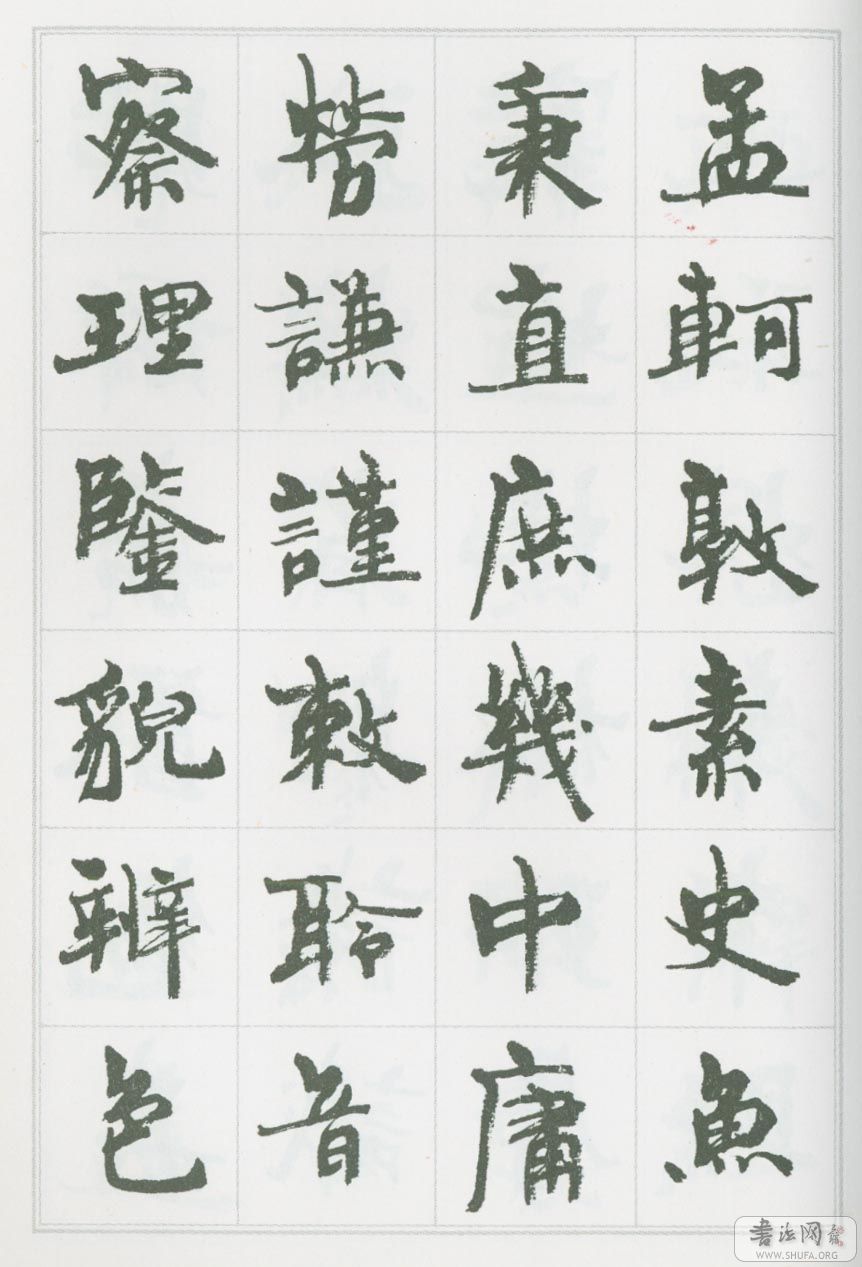 孟軻敦素史魚
秉直庶幾中庸
勞謙謹敕聆音
察理鑒貌辨色
书法网
WWW.SHUFA.ORG